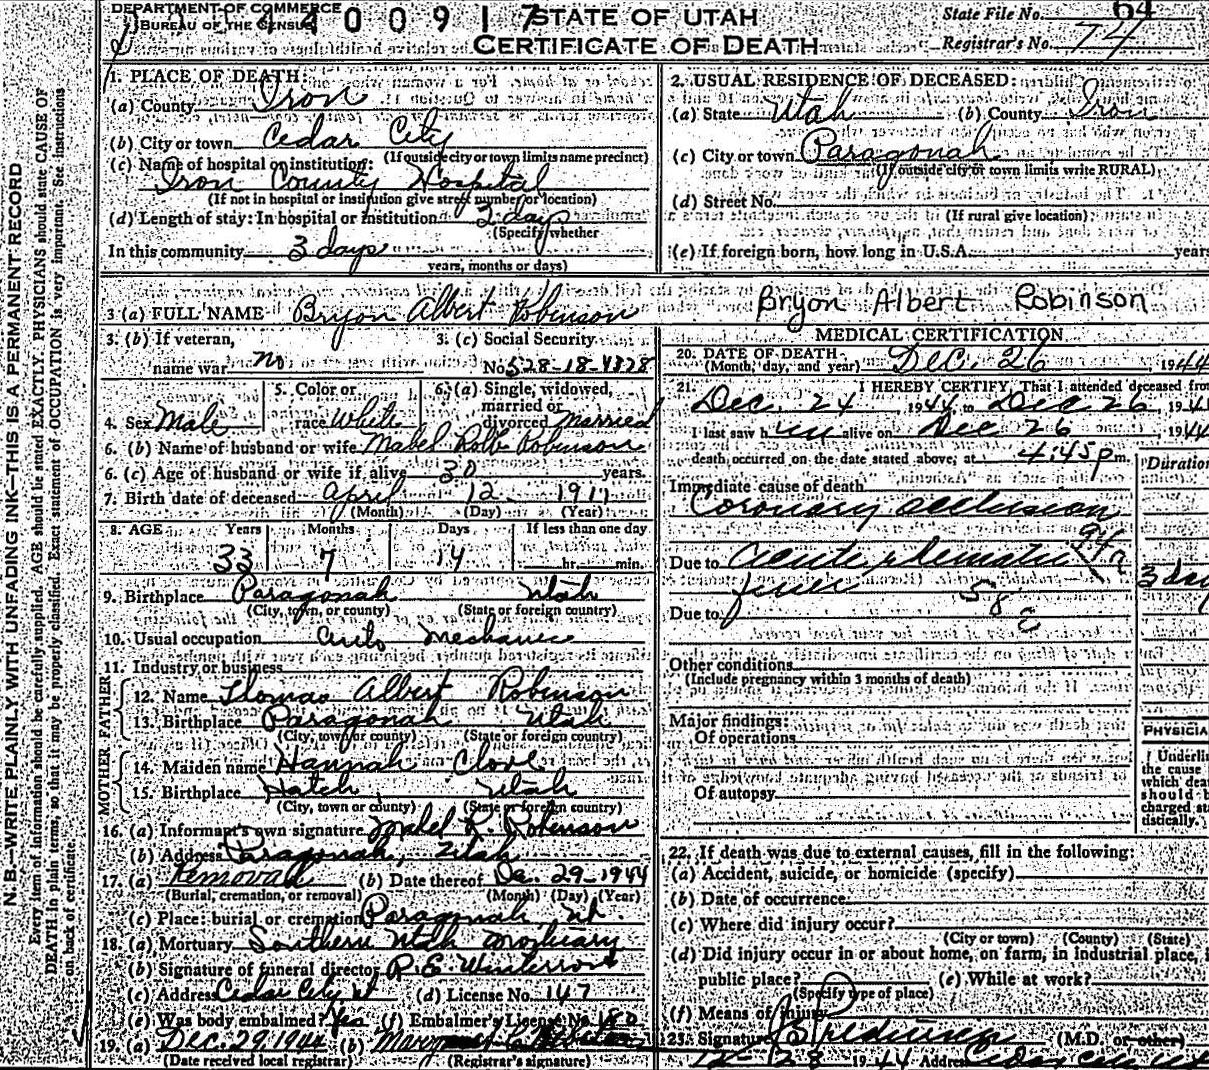 DEPARTMENT OF COMMERCE
BUREAU OF THE CENSUS
400917
STATE OF UTAH
CERTIFICATE OF DEATH
State File No. 64
Registrar's No. 74
N.B.—WRITE PLAINLY WITH UNFADING INK—THIS IS A PERMANENT RECORD
Every item of information should be carefully supplied. AGE should be stated EXACTLY. PHYSICIANS should state CAUSE OF
DEATH in plain terms, so that it may be properly classified. Exact statement of OCCUPATION is very important. See instructions
on back of certificate.
1. PLACE OF DEATH:
(a) County Iron
(b) City or town Cedar City
(If outside city or town limits name precinct)
(c) Name of hospital or institution:
Iron County Hospital
(If not in hospital or institution give street number or location)
(d) Length of stay: In hospital or institution 3 days
(Specify whether
In this community 3 days
years, months or days)
2. USUAL RESIDENCE OF DECEASED:
(a) State Utah (b) County Iron
(c) City or town Paragonah
(If outside city or town limits write RURAL)
(d) Street No.
(If rural give location)
(e) If foreign born, how long in U.S.A. years
3 (a) FULL NAME Bryon Albert Robinson
Bryon Albert Robinson
3. (b) If veteran,
name war no
3. (c) Social Security
No. 528-18-4828
4. Sex Male
5. Color or
race White
6. (a) Single, widowed,
married or
divorced Married
6. (b) Name of husband or wife Mabel Robb Robinson
6. (c) Age of husband or wife if alive 30 years.
7. Birth date of deceased April 12 1911
(Month) (Day) (Year)
8. AGE Years Months Days If less than one day
33 7 14 hr. min.
9. Birthplace Paragonah Utah
(City, town, or county) (State or foreign country)
10. Usual occupation Auto Mechanic
11. Industry or business
FATHER
12. Name Thomas Albert Robinson
13. Birthplace Paragonah Utah
(City, town or county) (State or foreign country)
MOTHER
14. Maiden name Hannah Clove
15. Birthplace Hatch Utah
(City, town or county) (State or foreign country)
16. (a) Informant's own signature Mabel R. Robinson
(b) Address Paragonah, Utah
17. (a) Removal (b) Date thereof Dec. 29-1944
(Burial, cremation, or removal) (Month) (Day) (Year)
(c) Place: burial or cremation Paragonah, Ut.
18. (a) Mortuary Southern Utah Mortuary
(b) Signature of funeral director R. E. Winterrose
(c) Address Cedar City Ut (d) License No. 147
(e) Was body embalmed? Yes (f) Embalmer's License No. 180
19. (a) Dec. 29, 1944 (b) Mary
(Date received local registrar) (Registrar's signature)
MEDICAL CERTIFICATION
20. DATE OF DEATH
(Month, day, and year) Dec. 26, 1944
21. I HEREBY CERTIFY, That I attended deceased from
Dec. 24 1944 to Dec 26, 1944
I last saw him alive on Dec 26, 1944
death occurred on the date stated above; at 4:45 p m.
Duration
Immediate cause of death
Coronary occlusion
94a
Due to acute rheumatic
fever
3 days
58c
Due to
Other conditions
(Include pregnancy within 3 months of death)
Major findings:
Of operations
Of autopsy
PHYSICIA
Underlin
the cause
which dea
should b
charged sta
tistically.
22. If death was due to external causes, fill in the following:
(a) Accident, suicide, or homicide (specify)
(b) Date of occurrence
(c) Where did injury occur?
(City or town) (County) (State)
(d) Did injury occur in or about home, on farm, in industrial place, i
public place? (e) While at work?
(Specify type of place)
(f) Means of injury
23. Signature (M.D. or other)
12-28 1944 Address Cedar City